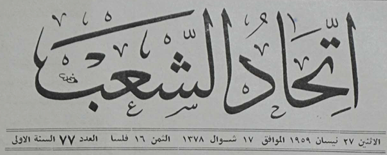 اتحاد الشعب
الاثنين ٢٧ نيسان ١٩٥٩ الموافق ١٧ شوال ١٣٧٨ الثمن ١٦ فلسا العدد ٧٧ السنة الاولى